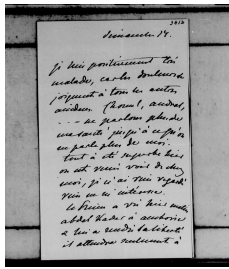 3812
dimanche 14.
je suis positivement très
malade, car les douleurs se
joignent à tous les autres
accidens (Chomel, Andral,
--- ne parlons plus de
ma santé jusqu'à ce qu'on
ne parle plus de moi.
tout a été superbe hier
on est venu vous dire chez
moi, je n'ai rien regardé
rien ne m'intéresse.
le Prince a vu hier matin
abdel Kader à amboise
a lui a rendu sa liberté
il attendra seulement à